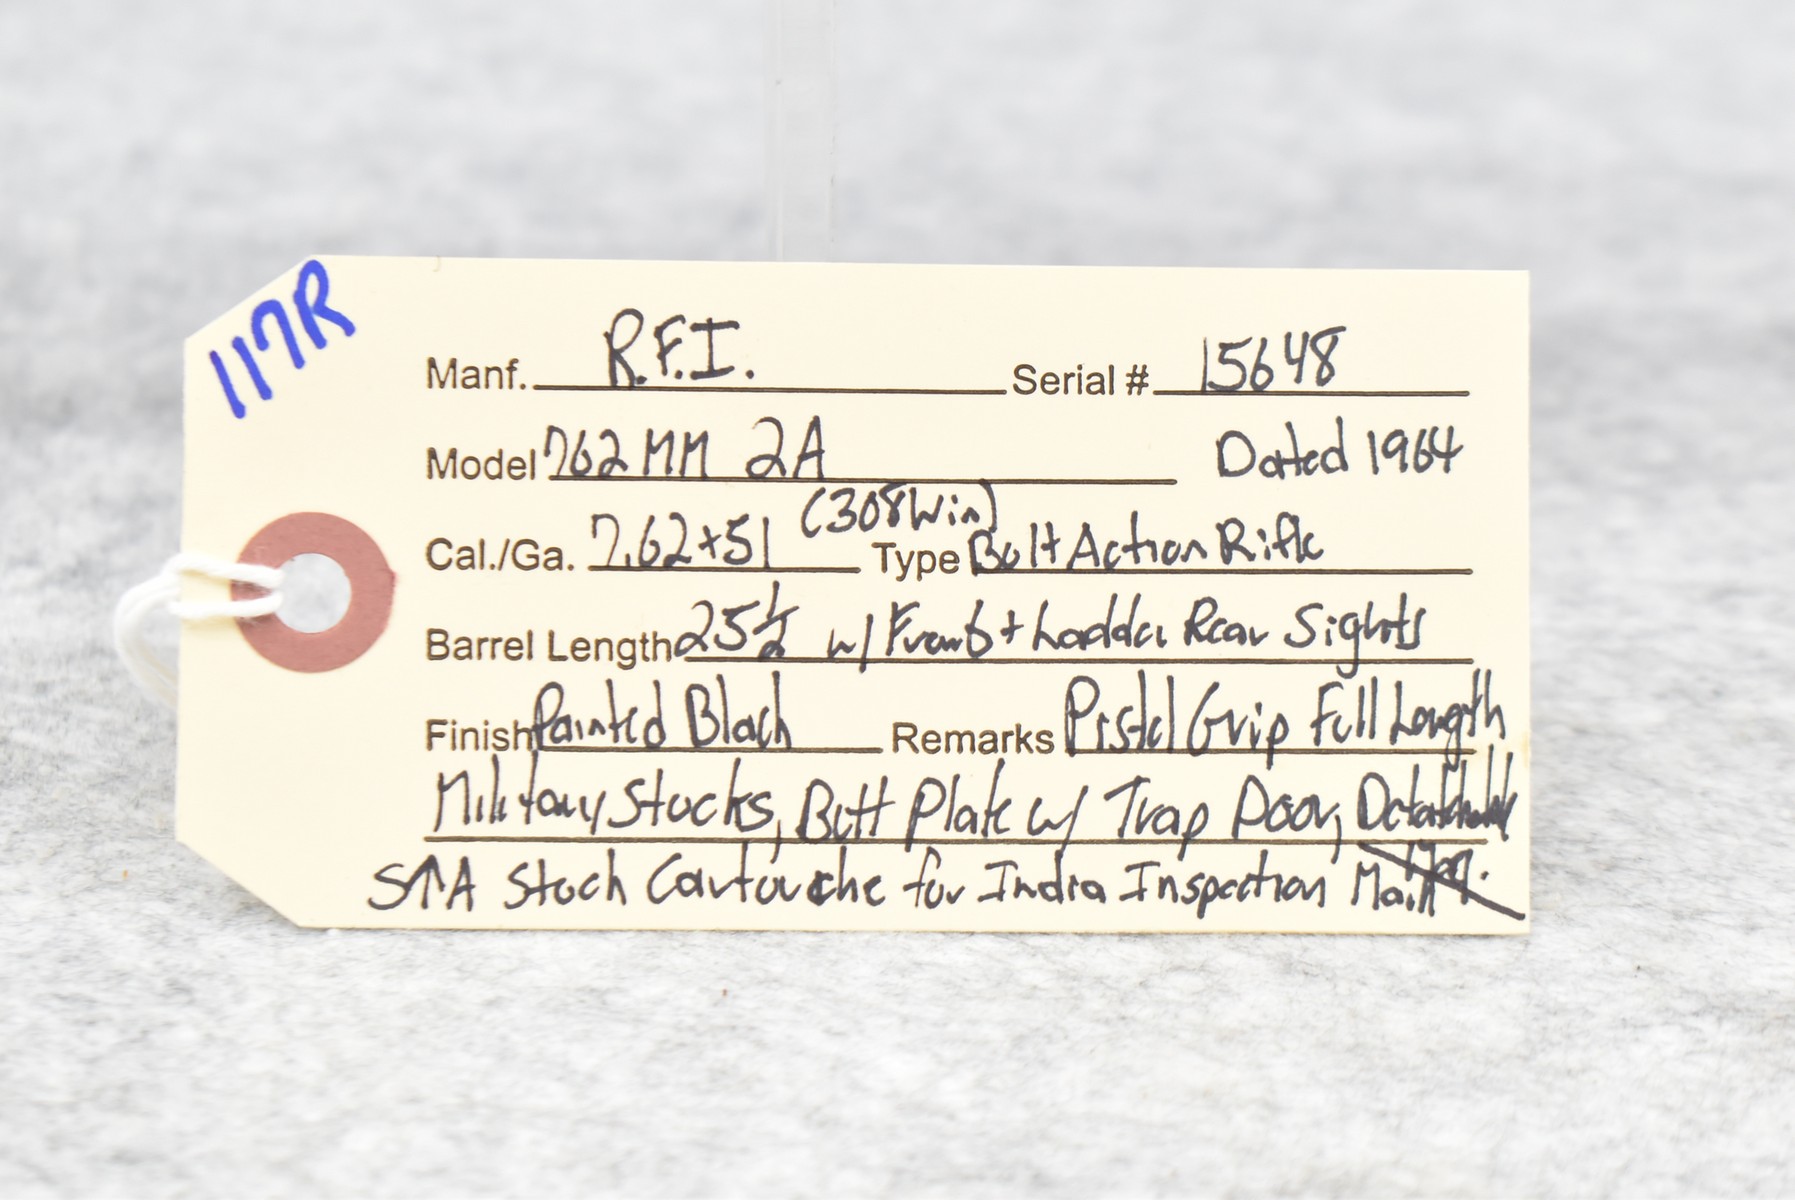 117R
Manf. R.F.I. Serial # 15648
Model 762 MM 2A Dated 1964
Cal./Ga. 7.62+51 (308 Win) Type Bolt Action Rifle
Barrel Length 25½ w/ Front + Ladder Rear Sights
Finish Painted Black Remarks Pistol Grip Full Length
Military Stocks, Butt Plate w/ Trap Door, Detatchable
S↑A Stock Cartouche for India Inspection